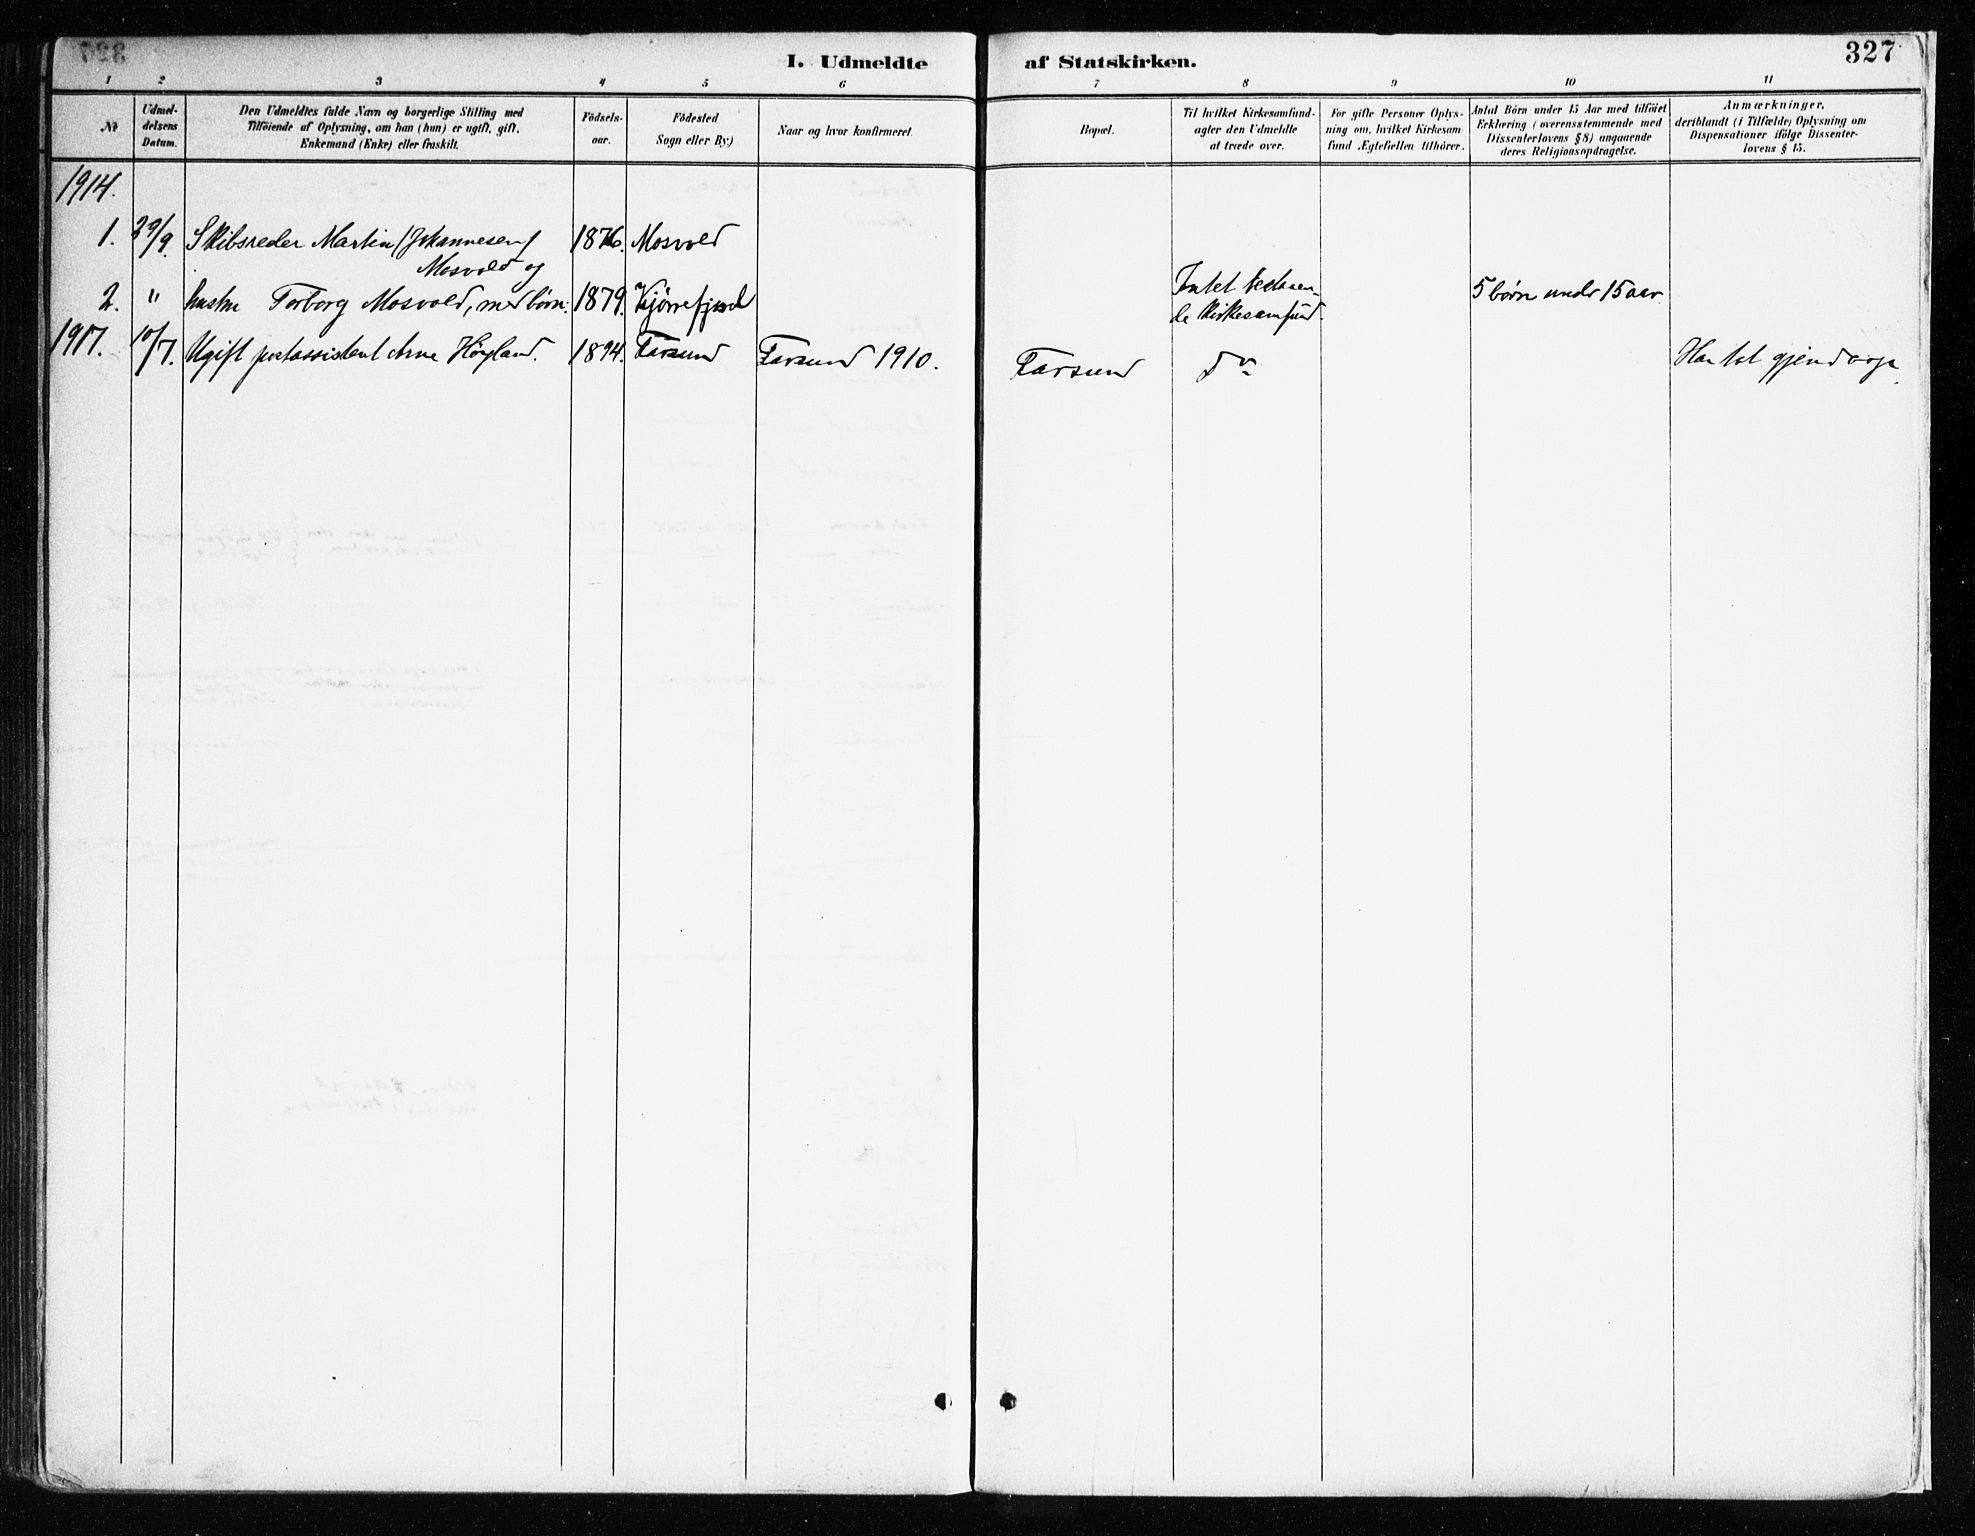 327
I. Udmeldte af Statskirken.
1 2 3 4 5 6 7 8 9 10 11
№
Udmel-
delsens
Datum.
Den Udmeldtes fulde Navn og borgerlige Stilling med
Tilföiende af Oplysning, om han (hun) er ugift, gift,
Enkemand (Enke) eller fraskilt.
Födsels-
aar.
Födested
Sogn eller By.)
Naar og hvor konfirmeret.
Bopæl.
Til hvilket Kirkesamfund
agter den Udmeldte
at træde over.
For gifte Personer Oplys-
ning om, hvilket Kirkesam-
fund Ægtefællen tilhörer.
Antal Börn under 15 Aar med tilföiet
Erklæring (overensstemmende med
Dissenterlovens § 8) angaaende
deres Religionsopdragelse.
Anmærkninger,
deriblandt (i Tilfælde) Oplysning om
Dispensationer ifölge Dissenter-
lovens § 15.
1914.
1. 29/9. Skibsreder Martin (Johannesen) 1876. Mosvold
Mosvold og
2. " hustru Torborg Mosvold, med børn: 1879. Kjørrefjord Intet bestaaen- 5 børn under 15 aar
de Kirkesamfund.
1917. 10/7. Ugift postassistent Arne Höyland. 1894. Farsund Farsund 1910. Farsund do Han tot gjen